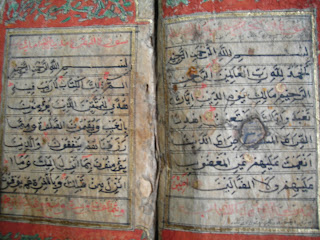 بسم الله الرحمن الرحيم
الحمد لله رب العلمين الرحمن
الرحيم ملك يوم الدين اياك
نعبد واياك نستعين اهدنا
الصراط المستقيم صراط الذين
انعمت عليهم غير المغضوب
عليهم ولا الضالين
بسم الله الرحمن الرحيم
الم ذلك الكتب لا ريب فيه
هدى للمتقين الذين يؤمنون
بالغيب ويقيمون الصلوة ومما
رزقنهم ينفقون والذين
يؤمنون بما انزل اليك وما
انزل من قبلك وبالاخرة هم يوقنون